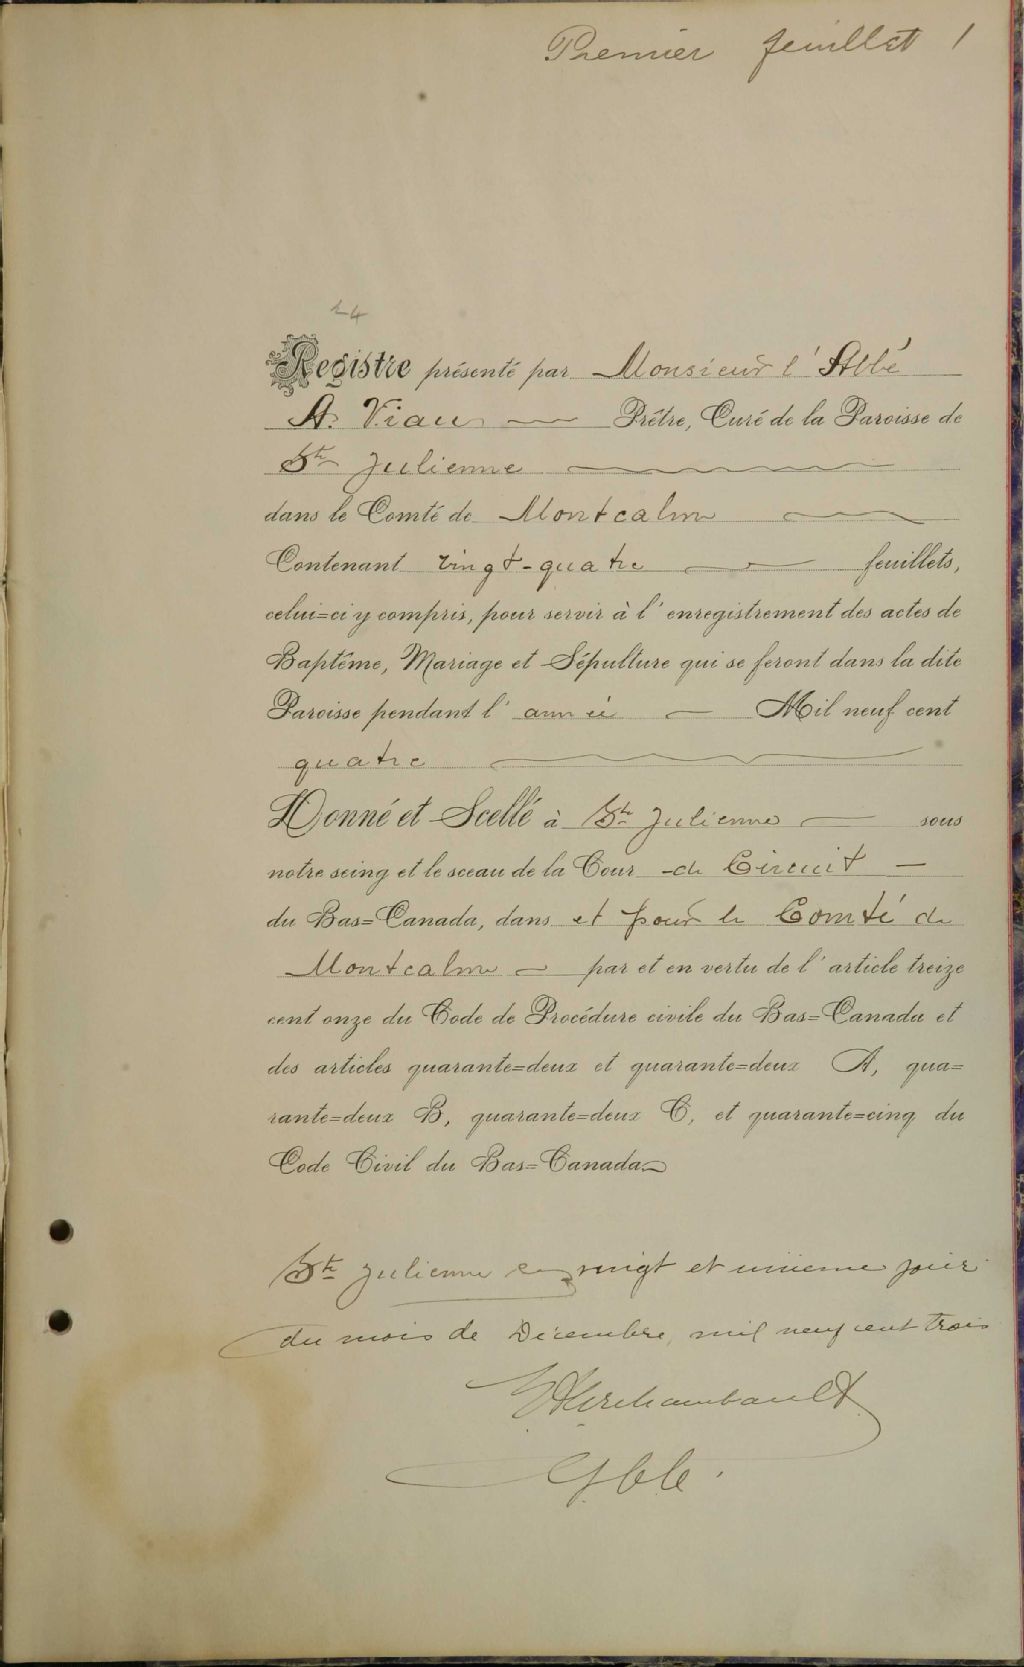 Premier feuillet 1
24
Registre présenté par Monsieur l'Abbé
A. Viau Prêtre, Curé de la Paroisse de
Ste Julienne
dans le Comté de Montcalm
Contenant vingt-quatre feuillets,
celui=ci y compris, pour servir à l'enregistrement des actes de
Baptême, Mariage et Sépulture qui se feront dans la dite
Paroisse pendant l'année Mil neuf cent
quatre
Donné et Scellé à Ste Julienne sous
notre seing et le sceau de la Cour de Circuit
du Bas=Canada, dans et pour le Comté de
Montcalm par et en vertu de l'article treize
cent onze du Code de Procédure civile du Bas=Canada et
des articles quarante=deux et quarante=deux A, qua=
rante=deux B, quarante=deux C, et quarante=cinq du
Code Civil du Bas=Canada
Ste Julienne ce vingt et unieme jour
du mois de Décembre, mil neuf cent trois
Archambault